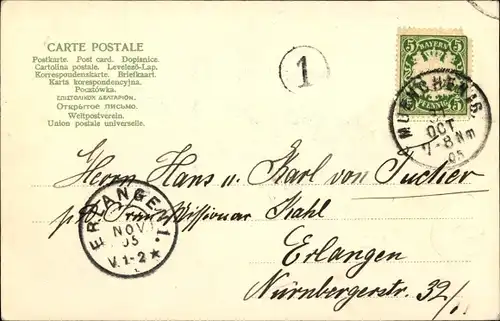 CARTE POSTALE
Postkarte. Post card. Dopisnice.
Cartolina postale. Levelező-Lap.
Korrespondenskarte. Briefkaart.
Karta korespondencyjna.
Pocztówka.
ΕΠΙΣΤΟΛΙΚΟΝ ΔΕΛΤΑΡΙΟΝ.
Открытое письмо.
Weltpostverein.
Union postale universelle.
1
5 BAYERN 5
5 PFENNIG 5
MUENCHEN
OCT
7-8 Nm
05
Herrn Hans u. Karl von Tucher
Missionar Kahl
Erlangen
Nürnbergerstr. 32/
ERLANGEN 1.
NOV
05
V. 1-2 ★